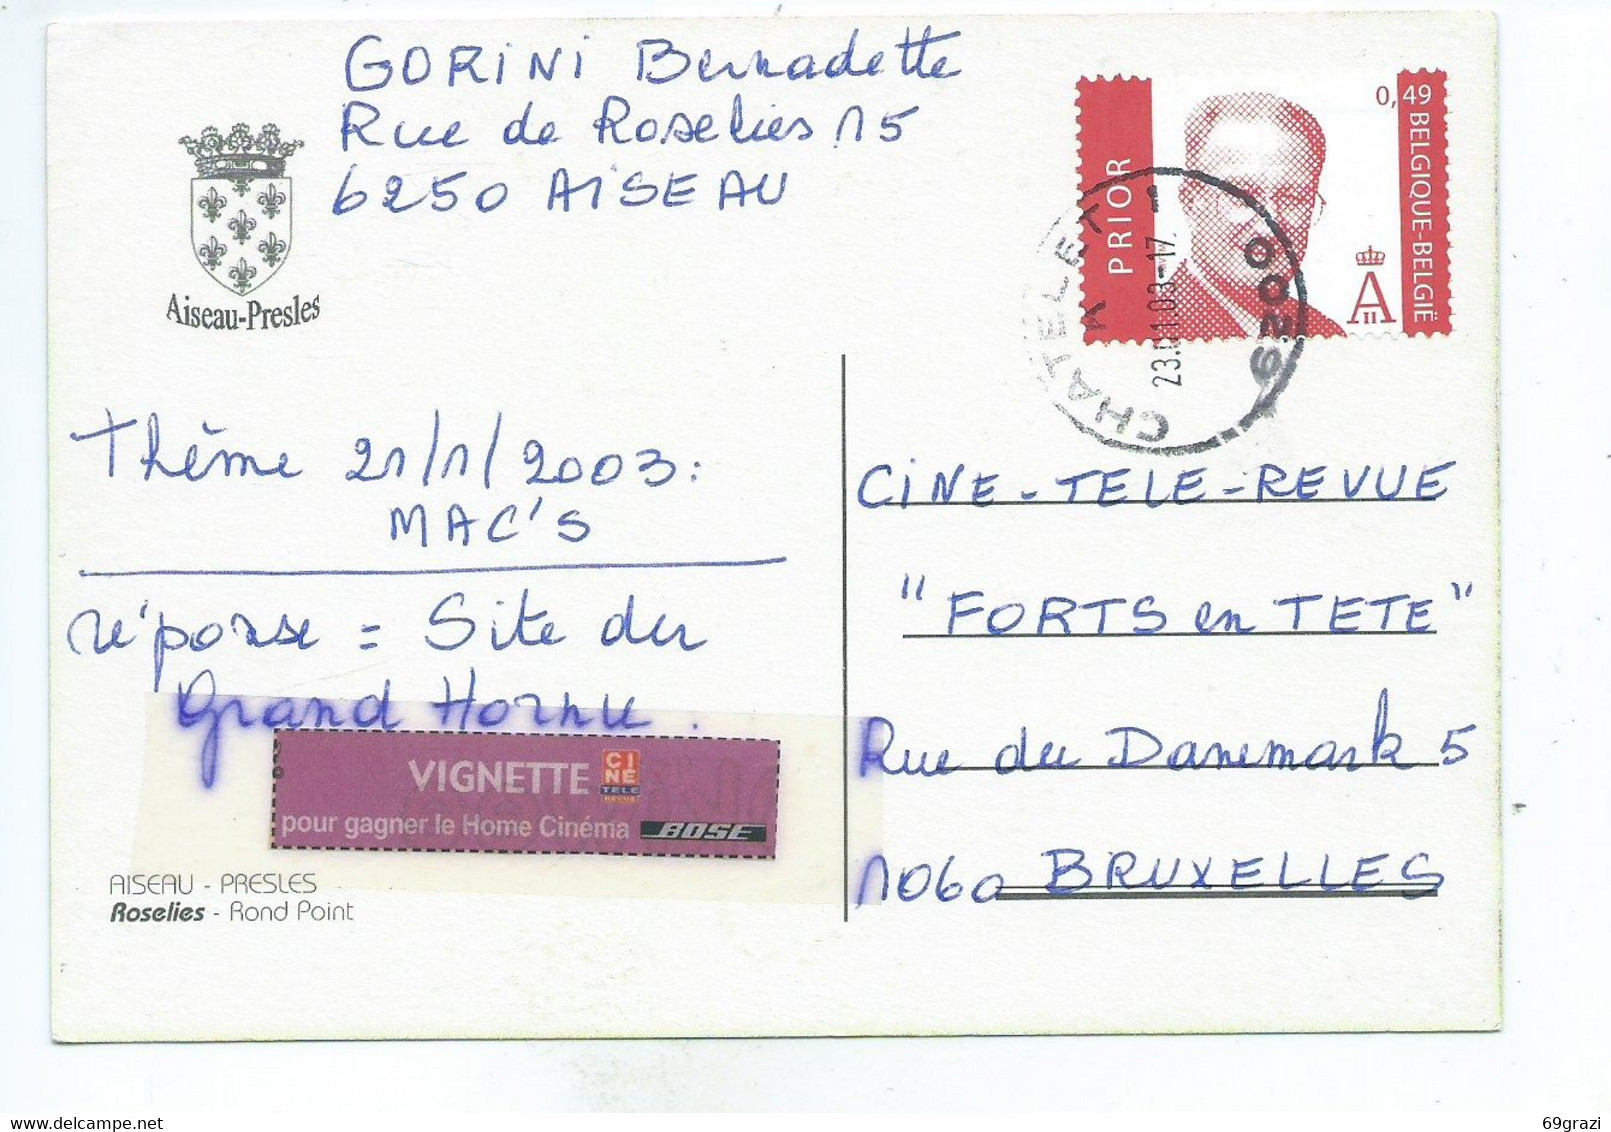 GORINI Bernadette
Rue de Roselies 15
6250 AISEAU
Aiseau-Presles
PRIOR
0,49 BELGIQUE-BELGIË
A
II
CHATELET 1
23.01.03-17
6200
Thême 21/1/2003:
MAC'S
réponse = Site du
Grand Hornu.
VIGNETTE CINÉ TELE REVUE
pour gagner le Home Cinéma BOSE
AISEAU - PRESLES
Roselies - Rond Point
CINE-TELE-REVUE
"FORTS en TETE"
Rue du Danemark 5
1060 BRUXELLES
delcampe.net
69grazi